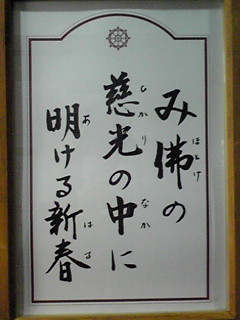 み佛の
慈光の中に
明ける新春
ほとけ
ひかり
なか
あ
はる